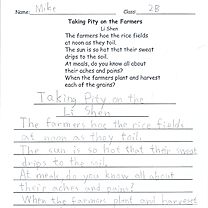 Name: Mike Class: 2B
Taking Pity on the Farmers
Li Shen
The farmers hoe the rice fields
at noon as they toil.
The sun is so hot that their sweat
drips to the soil.
At meals, do you know all about
their aches and pains?
When the farmers plant and harvest
each of the grains?
Taking Pity on the
Li Shen
The farmers hoe the rice fields
at noon as they toil.
The sun is so hot that their sweat
drips to the soil.
At meals, do you know all about
their aches and pains?
When the farmers plant and harvest